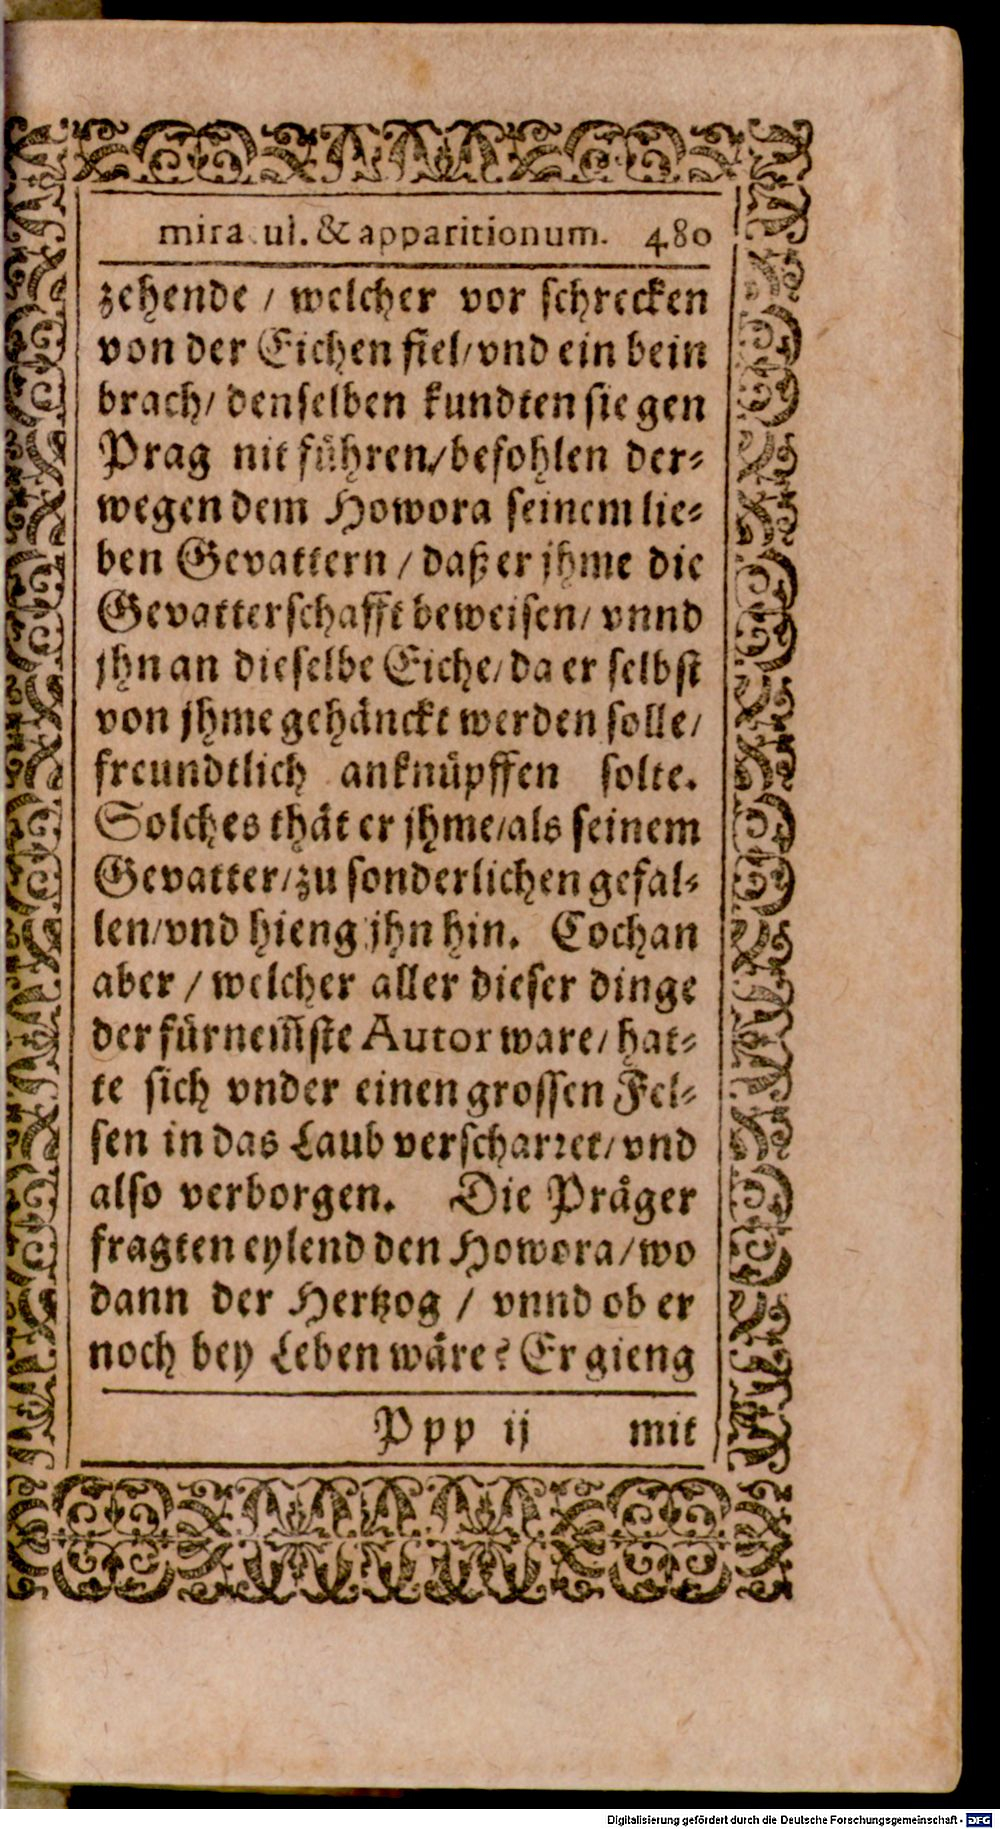 mira ul. & apparitionum. 480
zehende / welcher vor schrecken
von der Eichen fiel/ vnd ein bein
brach/ denselben kundten sie gen
Prag nit führen/ befohlen der⸗
wegen dem Howora seinem lie⸗
ben Gevattern / daß er jhme die
Gevatterschafft beweisen/ vnnd
jhn an dieselbe Eiche/ da er selbst
von jhme gehänckt werden solle/
freundtlich anknüpffen solte.
Solches thät er jhme/ als seinem
Gevatter/ zu sonderlichen gefal⸗
len/ vnd hieng jhn hin. Cochan
aber / welcher aller dieser dinge
der fürnem̃ste Autor ware/ hat⸗
te sich vnder einen grossen Fel⸗
sen in das Laub verscharret/ vnd
also verborgen. Die Präger
fragten eylend den Howora/ wo
dann der Hertzog / vnnd ob er
noch bey Leben wäre? Er gieng
Ppp ij mit
Digitalisierung gefördert durch die Deutsche Forschungsgemeinschaft - DFG